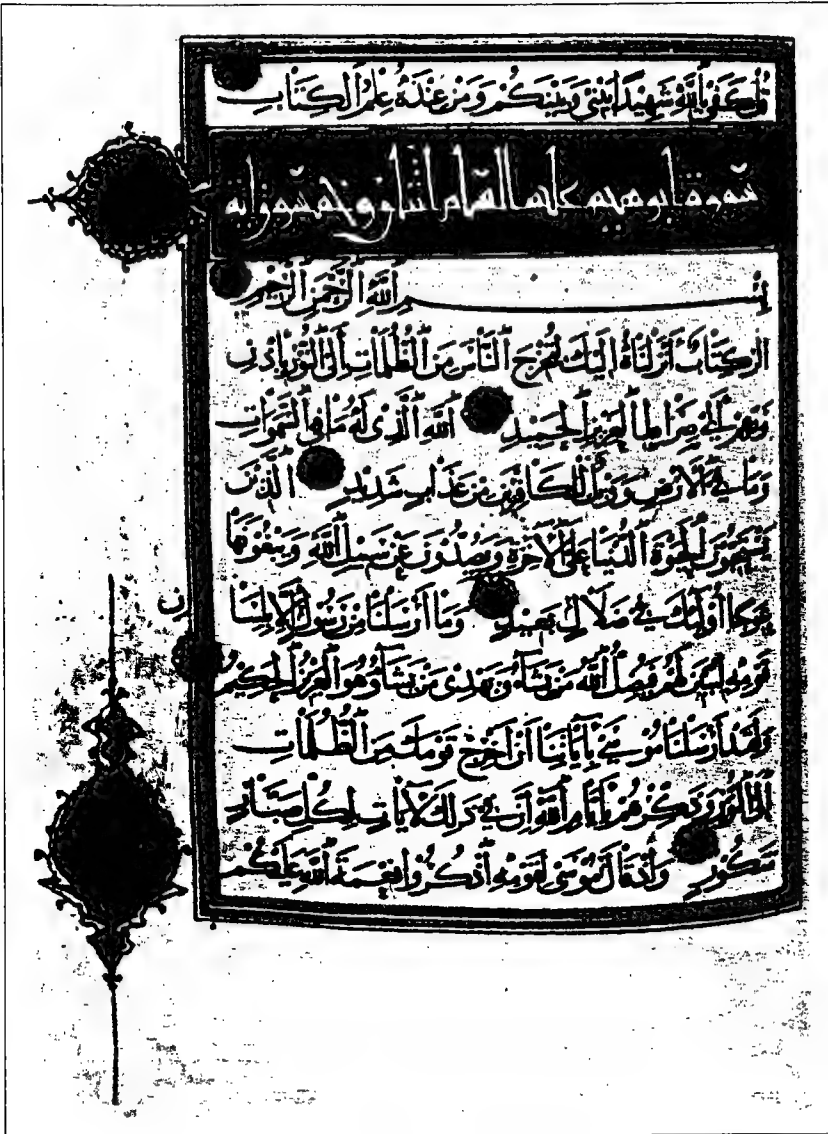 قُلْ كَفَىٰ بِاللَّهِ شَهِيدًا بَيْنِي وَبَيْنَكُمْ وَمَنْ عِنْدَهُ عِلْمُ الْكِتَابِ
سورة ابرهيم عليه السلام اثنتان وخمسون اية
بِسْمِ اللَّهِ الرَّحْمَنِ الرَّحِيمِ
الر كِتَابٌ أَنْزَلْنَاهُ إِلَيْكَ لِتُخْرِجَ النَّاسَ مِنَ الظُّلُمَاتِ إِلَى النُّورِ بِإِذْنِ
رَبِّهِمْ إِلَى صِرَاطِ الْعَزِيزِ الْحَمِيدِ اللَّهِ الَّذِي لَهُ مَا فِي السَّمَوَاتِ
وَمَا فِي الْأَرْضِ وَوَيْلٌ لِلْكَافِرِينَ مِنْ عَذَابٍ شَدِيدٍ الَّذِينَ
يَسْتَحِبُّونَ الْحَيَوةَ الدُّنْيَا عَلَى الْآخِرَةِ وَيَصُدُّونَ عَنْ سَبِيلِ اللَّهِ وَيَبْغُونَهَا
عِوَجًا أُولَئِكَ فِي ضَلَالٍ بَعِيدٍ وَمَا أَرْسَلْنَا مِنْ رَسُولٍ إِلَّا بِلِسَانِ
قَوْمِهِ لِيُبَيِّنَ لَهُمْ فَيُضِلُّ اللَّهُ مَنْ يَشَاءُ وَيَهْدِي مَنْ يَشَاءُ وَهُوَ الْعَزِيزُ الْحَكِيمُ
وَلَقَدْ أَرْسَلْنَا مُوسَى بِآيَاتِنَا أَنْ أَخْرِجْ قَوْمَكَ مِنَ الظُّلُمَاتِ
إِلَى النُّورِ وَذَكِّرْهُمْ بِأَيَّامِ اللَّهِ إِنَّ فِي ذَلِكَ لَآيَاتٍ لِكُلِّ صَبَّارٍ
شَكُورٍ وَإِذْ قَالَ مُوسَى لِقَوْمِهِ اذْكُرُوا نِعْمَةَ اللَّهِ عَلَيْكُمْ